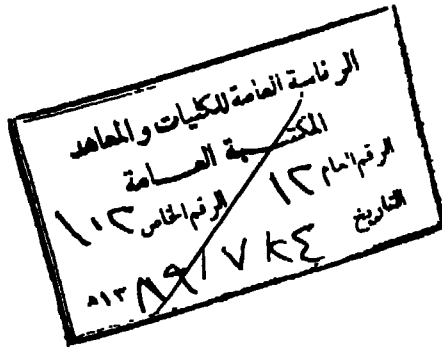 الرئاسة العامة للكليات والمعاهد
المكتبة العامة
الرقم العام ١٢ الرقم الخاص
التاريخ ٢٤ / ٧ / ٨٩ ١٣هـ